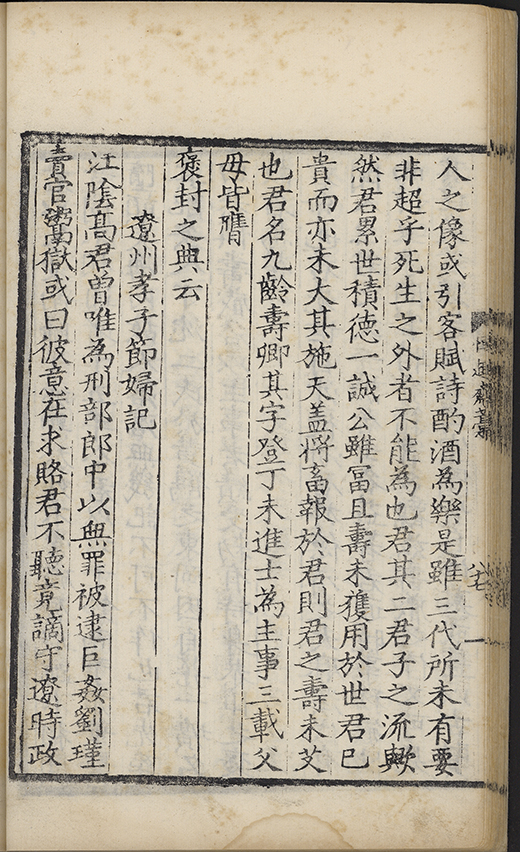 人之像或引客賦詩酌酒為樂是雖三代所未有要
非超乎死生之外者不能為也君其二君子之流歟
然君累世積德一誠公雖冨且壽未獲用於世君已
貴而亦未大其施天盖將畜報於君則君之壽未艾
也君名九齡壽卿其字登丁未進士為主事三載父
母皆膺
褒封之典云
遼州孝子節婦記
江陰高君曾唯為刑部郎中以無罪被逮巨姦劉瑾
賣官鬻獄或曰彼意在求賂君不聽竟謫守遼時政